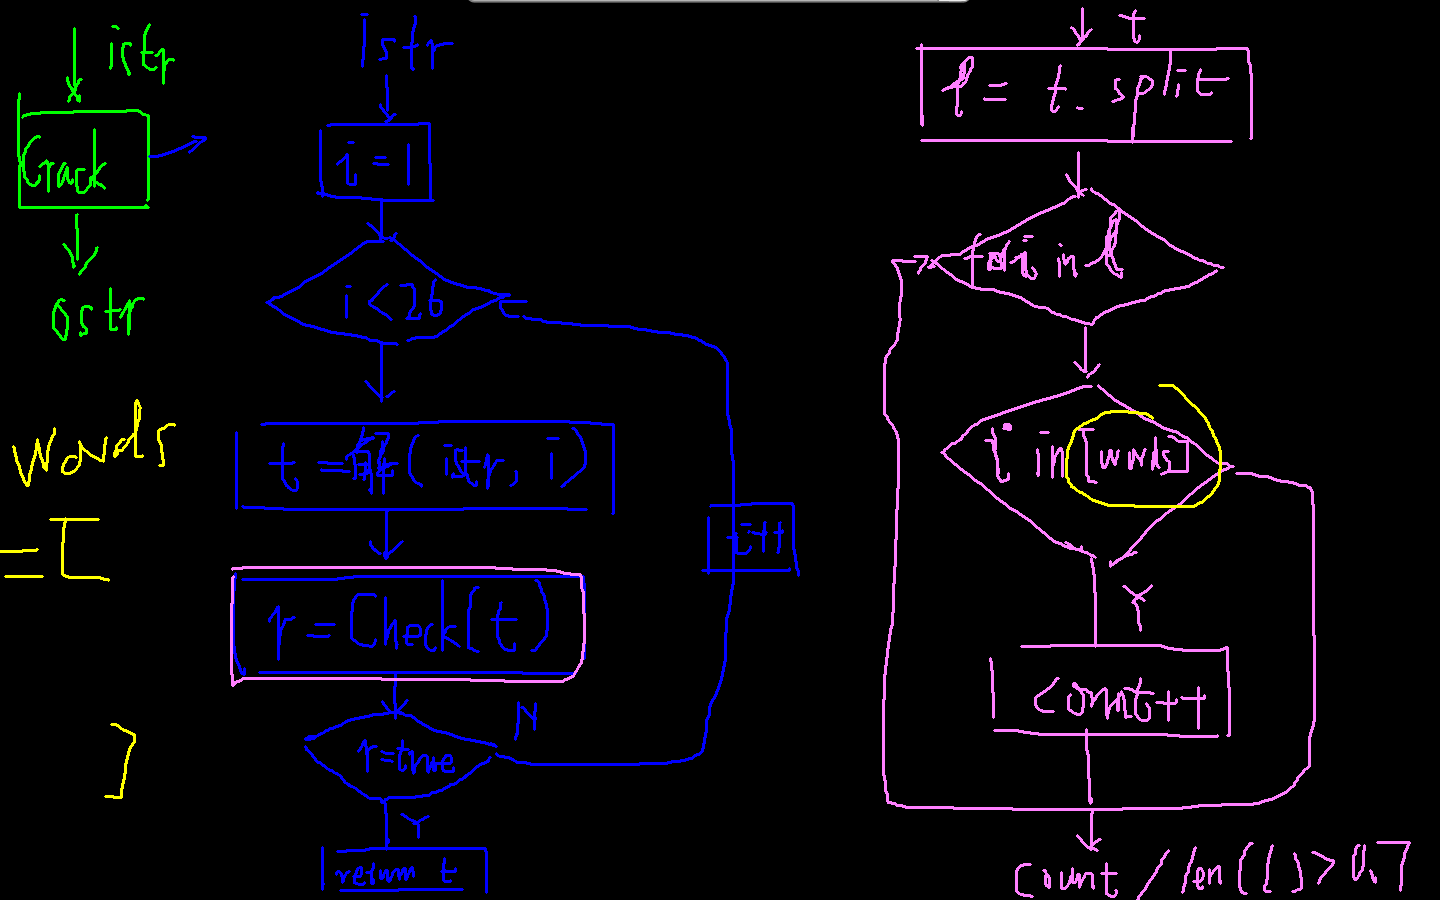 istr
Crack
ostr
words
= [
]
istr
i = 1
i < 26
t = (istr, i)
i++
r = Check(t)
N
r=true
Y
return t
t
l = t. split
for i in l
i in [words]
Y
count++
count / len(l) > 0.7